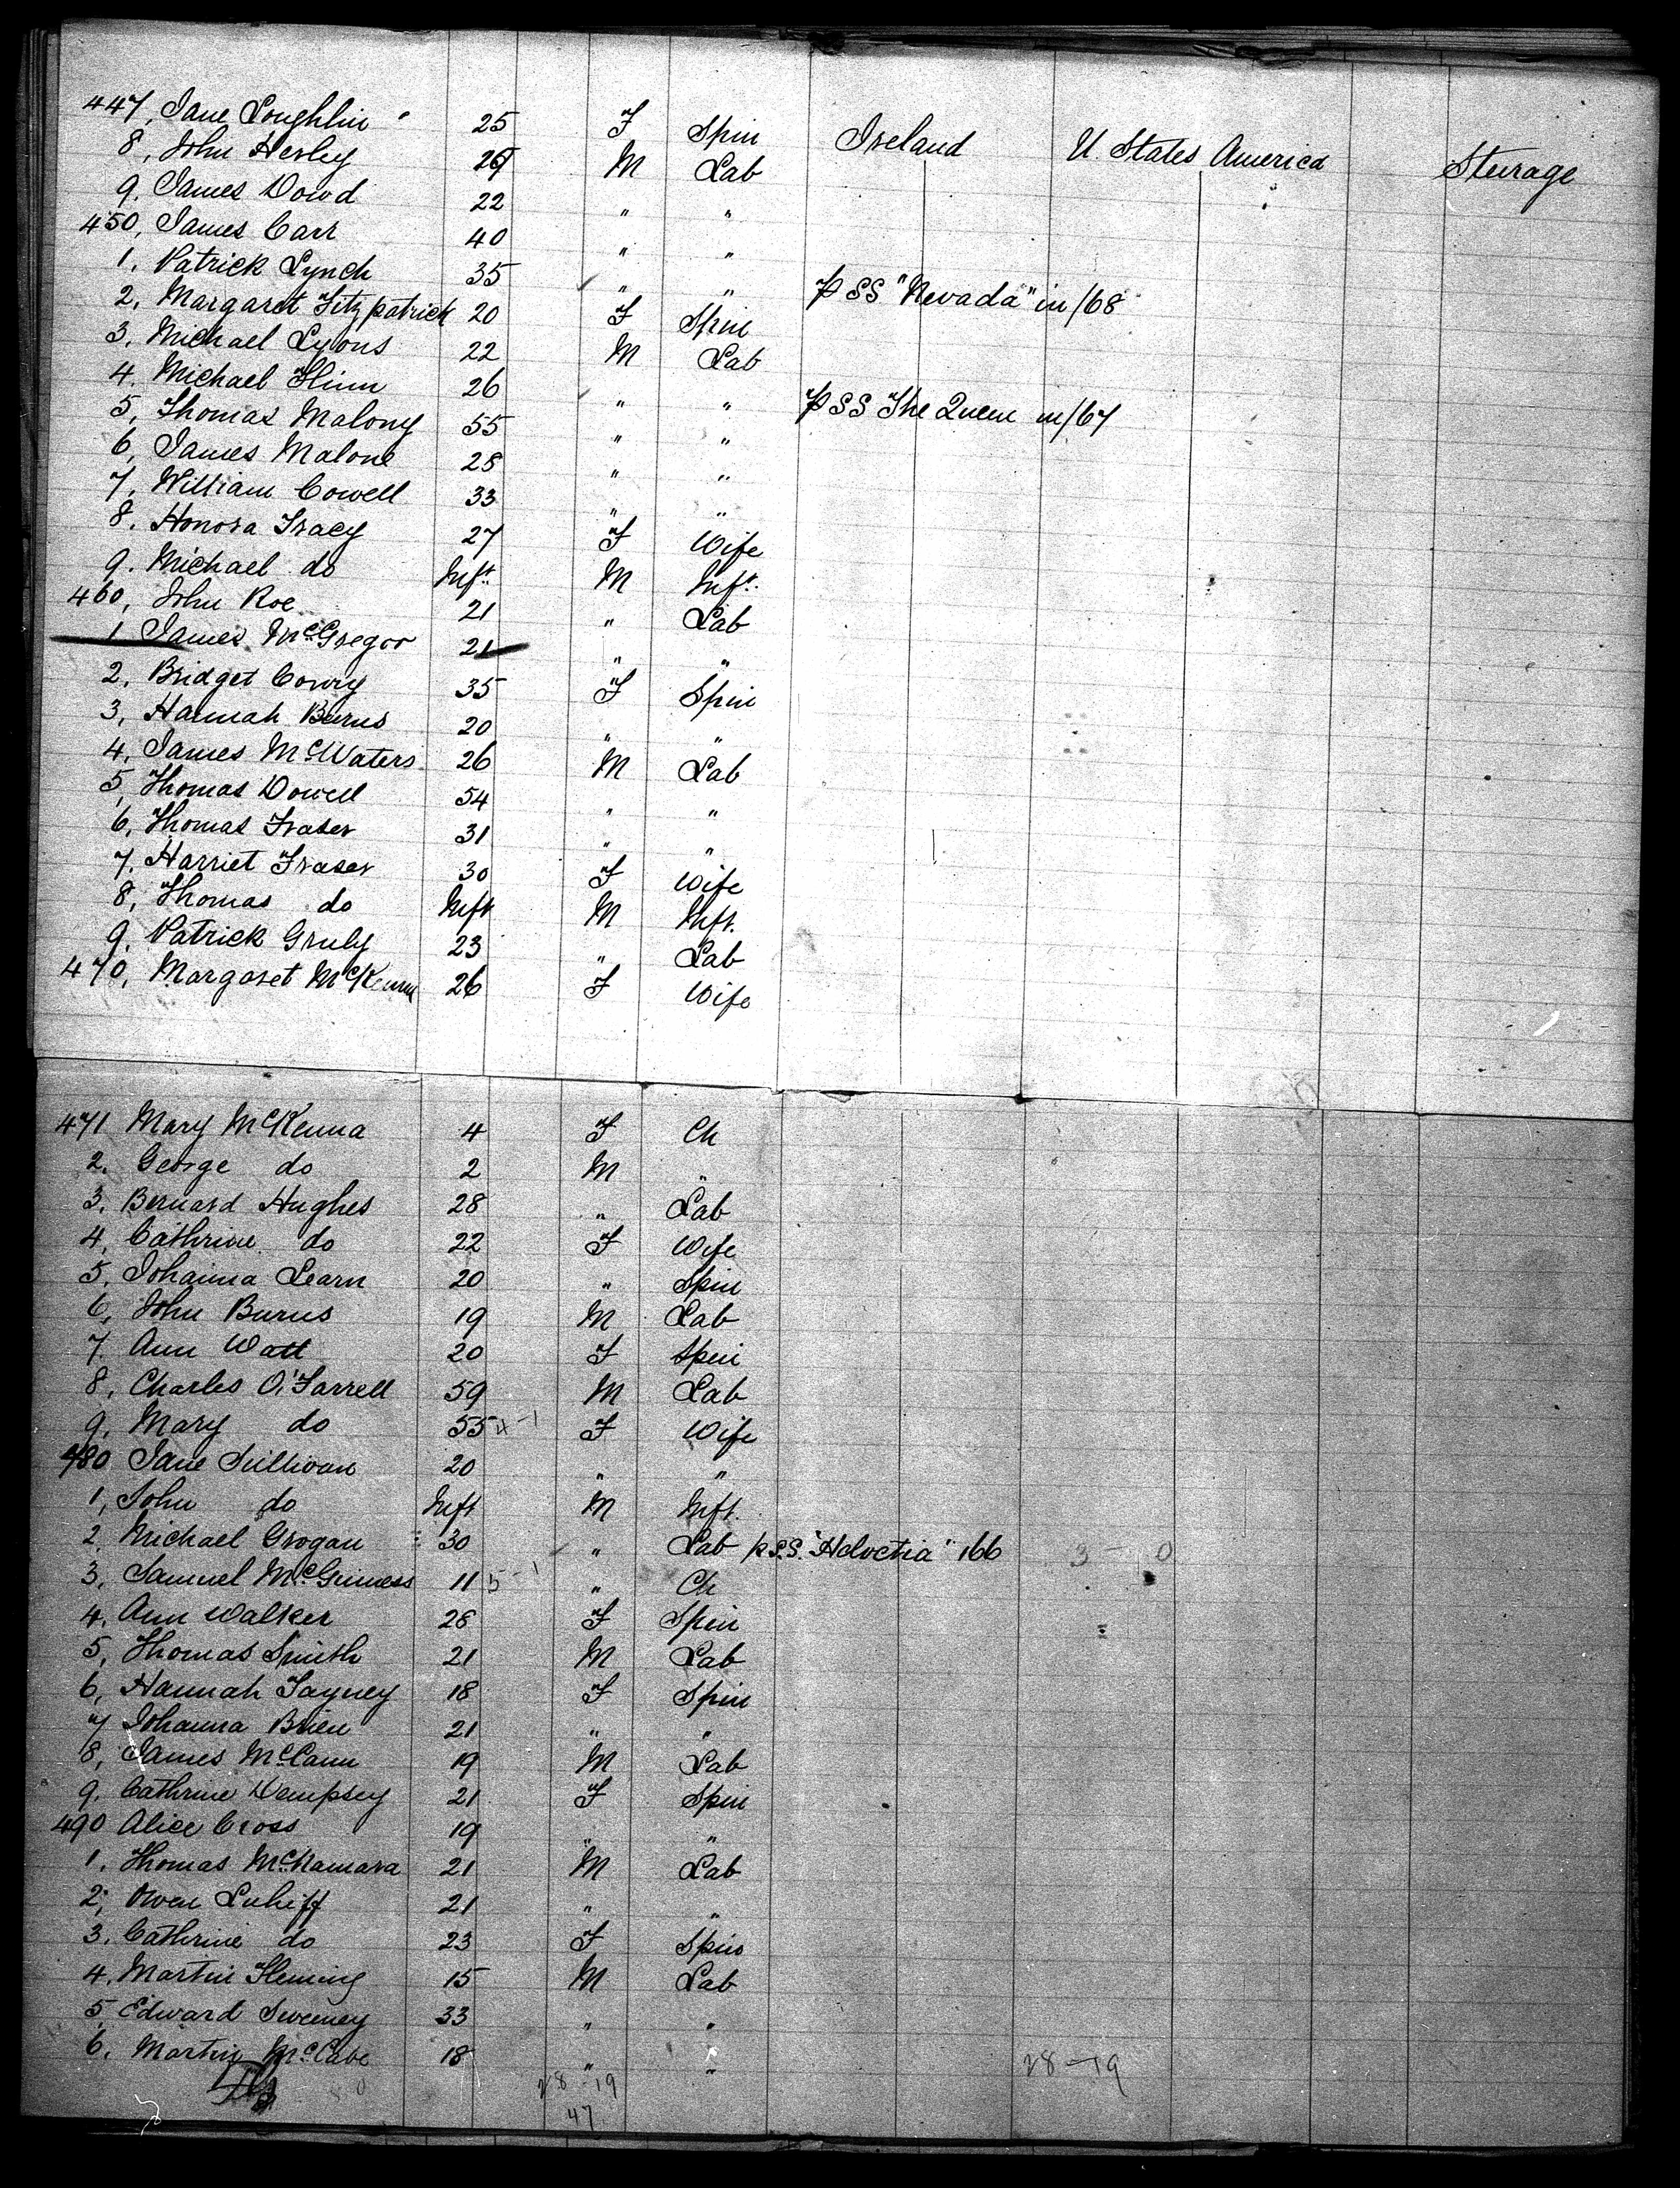 447, Jane Loughlin " 25 F Spin Ireland U. States America Sturage
8, John Herley 26 M Lab
9. James Dowd 22 " "
450, James Carr 40 " "
1, Patrick Lynch 35 " " p SS "Nevada" in /68
2, Margaret Fitzpatrick 20 F Spin
3, Michael Lyons 22 M Lab
4. Michael Flinn 26 " " p SS The Queen in/67
5, Thomas Malony 55 " "
6, James Malone 28 " "
7, William Cowell 33 " "
8. Honora Tracy 27 F Wife
9. Michael do Inft. M Inft.
460, John Roe 21 " Lab
1 James McGregor 21 " "
2, Bridget Conry 35 F Spin
3, Hannah Burns 20 " "
4, James McWaters 26 M Lab
5, Thomas Dowell 54 " "
6, Thomas Fraser 31 " "
7, Harriet Fraser 30 F Wife
8, Thomas do Inft M Inft.
9. Patrick Gruly 23 " Lab
470, Margaret McKenna 26 F Wife
471 Mary McKenna 4 F Ch
2. George do 2 M "
3. Bernard Hughes 28 " Lab
4, Cathrine do 22 F Wife
5. Johanna Learn 20 " Spin
6, John Burns 19 M Lab
7. Ann Watt 20 F Spin
8, Charles O'Farrell 59 M Lab
9, Mary do 55 4-1 F Wife
480 Jane Sullivan 20 " "
1, John do Inft M Inft.
2, Michael Grogan 30 " Lab p S.S. "Helvetia" /66 3-0
3, Samuel McGuiness 11 5-1 " Ch
4. Ann Walker 28 F Spin
5, Thomas Smith 21 M Lab
6, Hannah Tayney 18 F Spin
7 Johanna Brien 21 " "
8, James McCann 19 M Lab
9. Cathrine Dempsey 21 F Spin
490 Alice Cross 19 " "
1. Thomas McNamara 21 M Lab
2; Owen Luhiff 21 " "
3. Cathrine do 23 F Spin
4, Martin Fleming 15 M Lab
5, Edward Sweeney 33 " "
6. Martin McCabe 18 " "
28-19 28-19
47